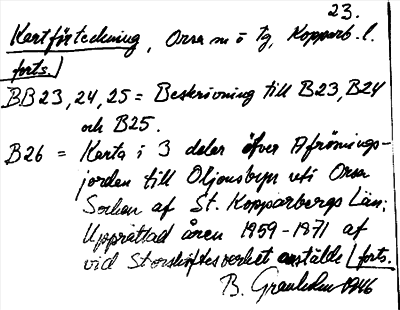 23.
Kartförteckning, Orsa m ö tg, Kopparb. l.
forts.
BB23, 24, 25 = Beskrivning till B23, B24
och B25.
B26 = Karta i 3 delar öfver Afrönings-
jorden till Oljonsbyn uti Orsa
Socken af St. Kopparbergs Län;
Upprättad åren 1959-1971 af
vid Storskiftesverket anstälde forts.
B. Granholm 1946